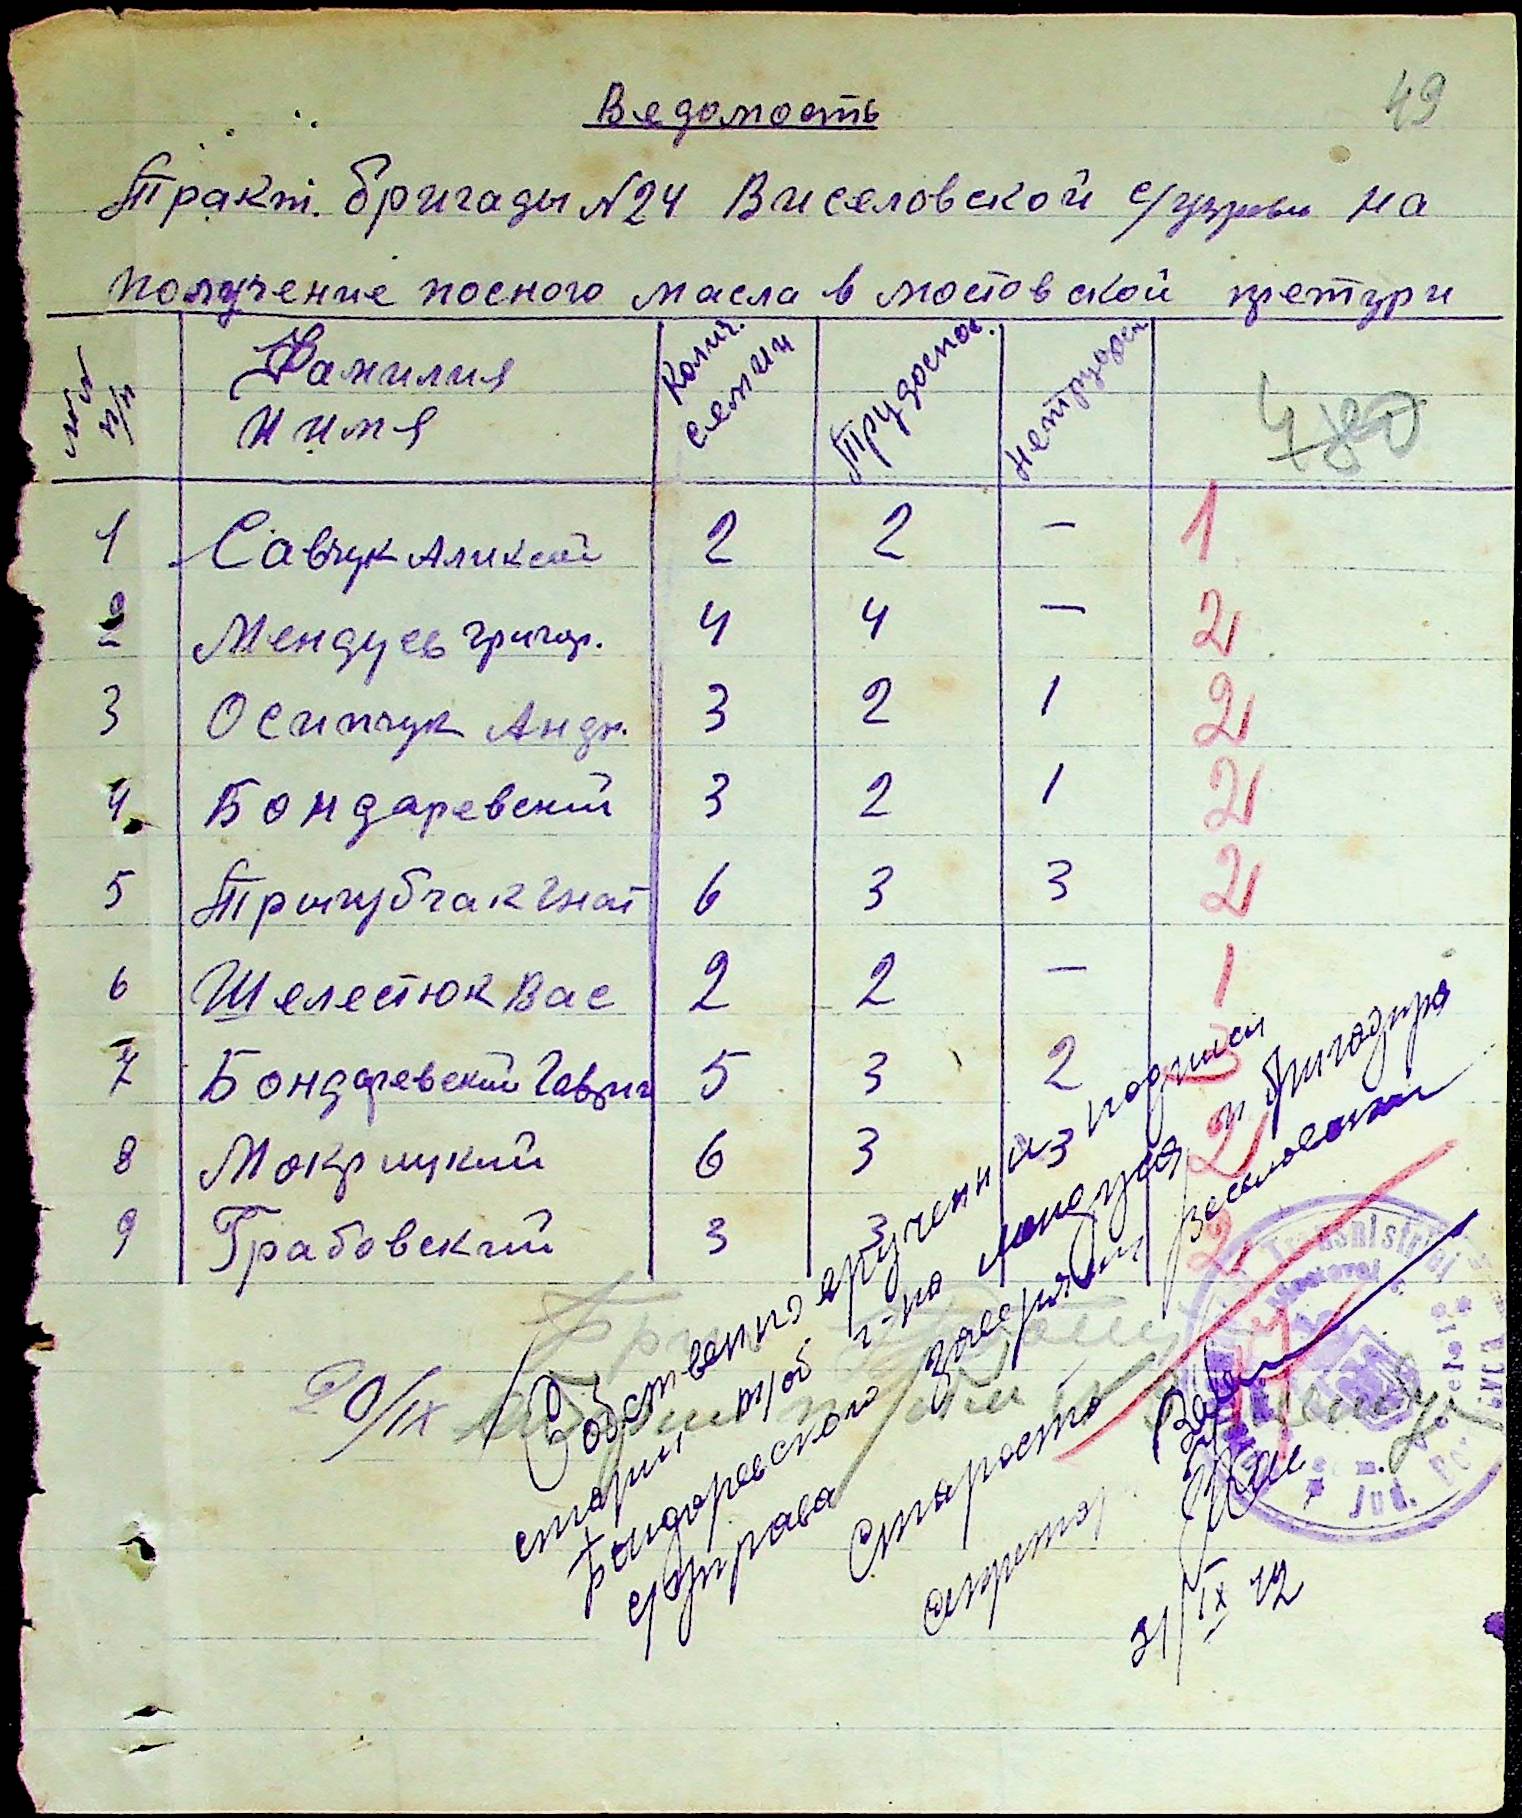 49
Ведомость
Тракт. бригады №24 Виселовской с/управы на
получение посного масла в мостовской претури
№№ п/п
Фамилия и имя
Колич. семии
Трудоспос.
Нетрудосп.
480
1 Савчук Аликсей 2 2 – 1
2 Мендусь Григор. 4 4 – 2
3 Осипчук Андр. 3 2 1 2
4 Бондаревский 3 2 1 2
5 Тригубчак Гнат 6 3 3 2
6 Шелестюк Вас 2 2 – 1
7 Бондаревский Гаврил 5 3 2 3
8 Мокрицкий 6 3 3 2
9 Грабовский 3 3 2
20/IX
17
Собственно ярученния подписи
старший г-на Мендуся и бригадира
Бондоревского заверяет Веселовская
с/управа
Староста
секретар.
21/IX 42
Transnistriei
Jud.